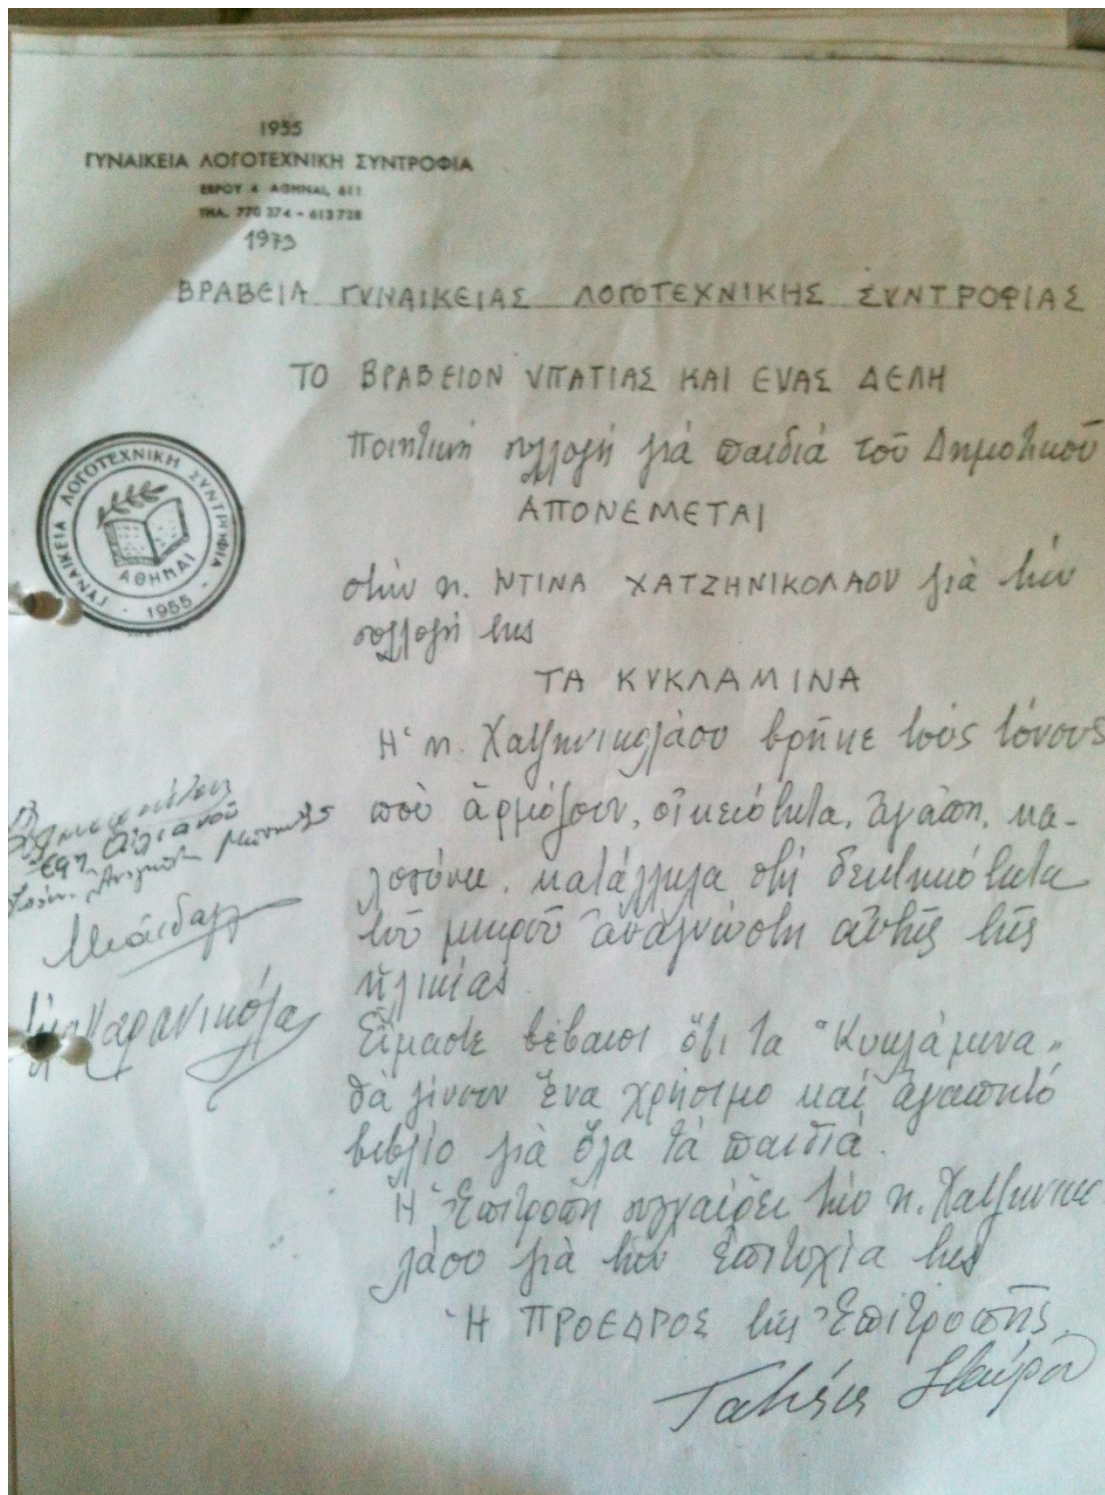 1955
ΓΥΝΑΙΚΕΙΑ ΛΟΓΟΤΕΧΝΙΚΗ ΣΥΝΤΡΟΦΙΑ
ΕΒΡΟΥ 4 ΑΘΗΝΑΙ, 611
ΤΗΛ. 770 374 - 613 728
1973
ΒΡΑΒΕΙΑ ΓΥΝΑΙΚΕΙΑΣ ΛΟΓΟΤΕΧΝΙΚΗΣ ΣΥΝΤΡΟΦΙΑΣ
ΤΟ ΒΡΑΒΕΙΟΝ ΥΠΑΤΙΑΣ ΚΑΙ ΕΥΑΣ ΔΕΛΗ
Ποιητική συλλογή γιὰ παιδιὰ τοῦ Δημοτικοῦ
ΑΠΟΝΕΜΕΤΑΙ
στὴν κ. ΝΤΙΝΑ ΧΑΤΖΗΝΙΚΟΛΑΟΥ γιὰ τὴν
συλλογή της
ΤΑ ΚΥΚΛΑΜΙΝΑ
Ἡ κ. Χατζηνικολάου βρῆκε τοὺς τόνους
ποὺ ἁρμόζουν, οἰκειότητα, ἀγάπη, κα-
λοσύνη, κατάλληλα στὴ δεκτικότητα
τοῦ μικροῦ ἀναγνώστη αὐτῆς τῆς
ἡλικίας
Εἴμαστε βέβαιοι ὅτι τα "Κυκλάμινα"
θὰ γίνουν ἕνα χρήσιμο καὶ ἀγαπητό
βιβλίο γιὰ ὅλα τὰ παιδιά.
Ἡ Ἐπιτροπὴ συγχαίρει τὴν κ. Χατζηνικο
λάου γιὰ τὴν ἐπιτυχία της
Ἡ ΠΡΟΕΔΡΟΣ τῆς Ἐπιτροπῆς
Τατιάνα Σταύρου
ΓΥΝΑΙΚΕΙΑ ΛΟΓΟΤΕΧΝΙΚΗ ΣΥΝΤΡΟΦΙΑ
ΑΘΗΝΑΙ
1955